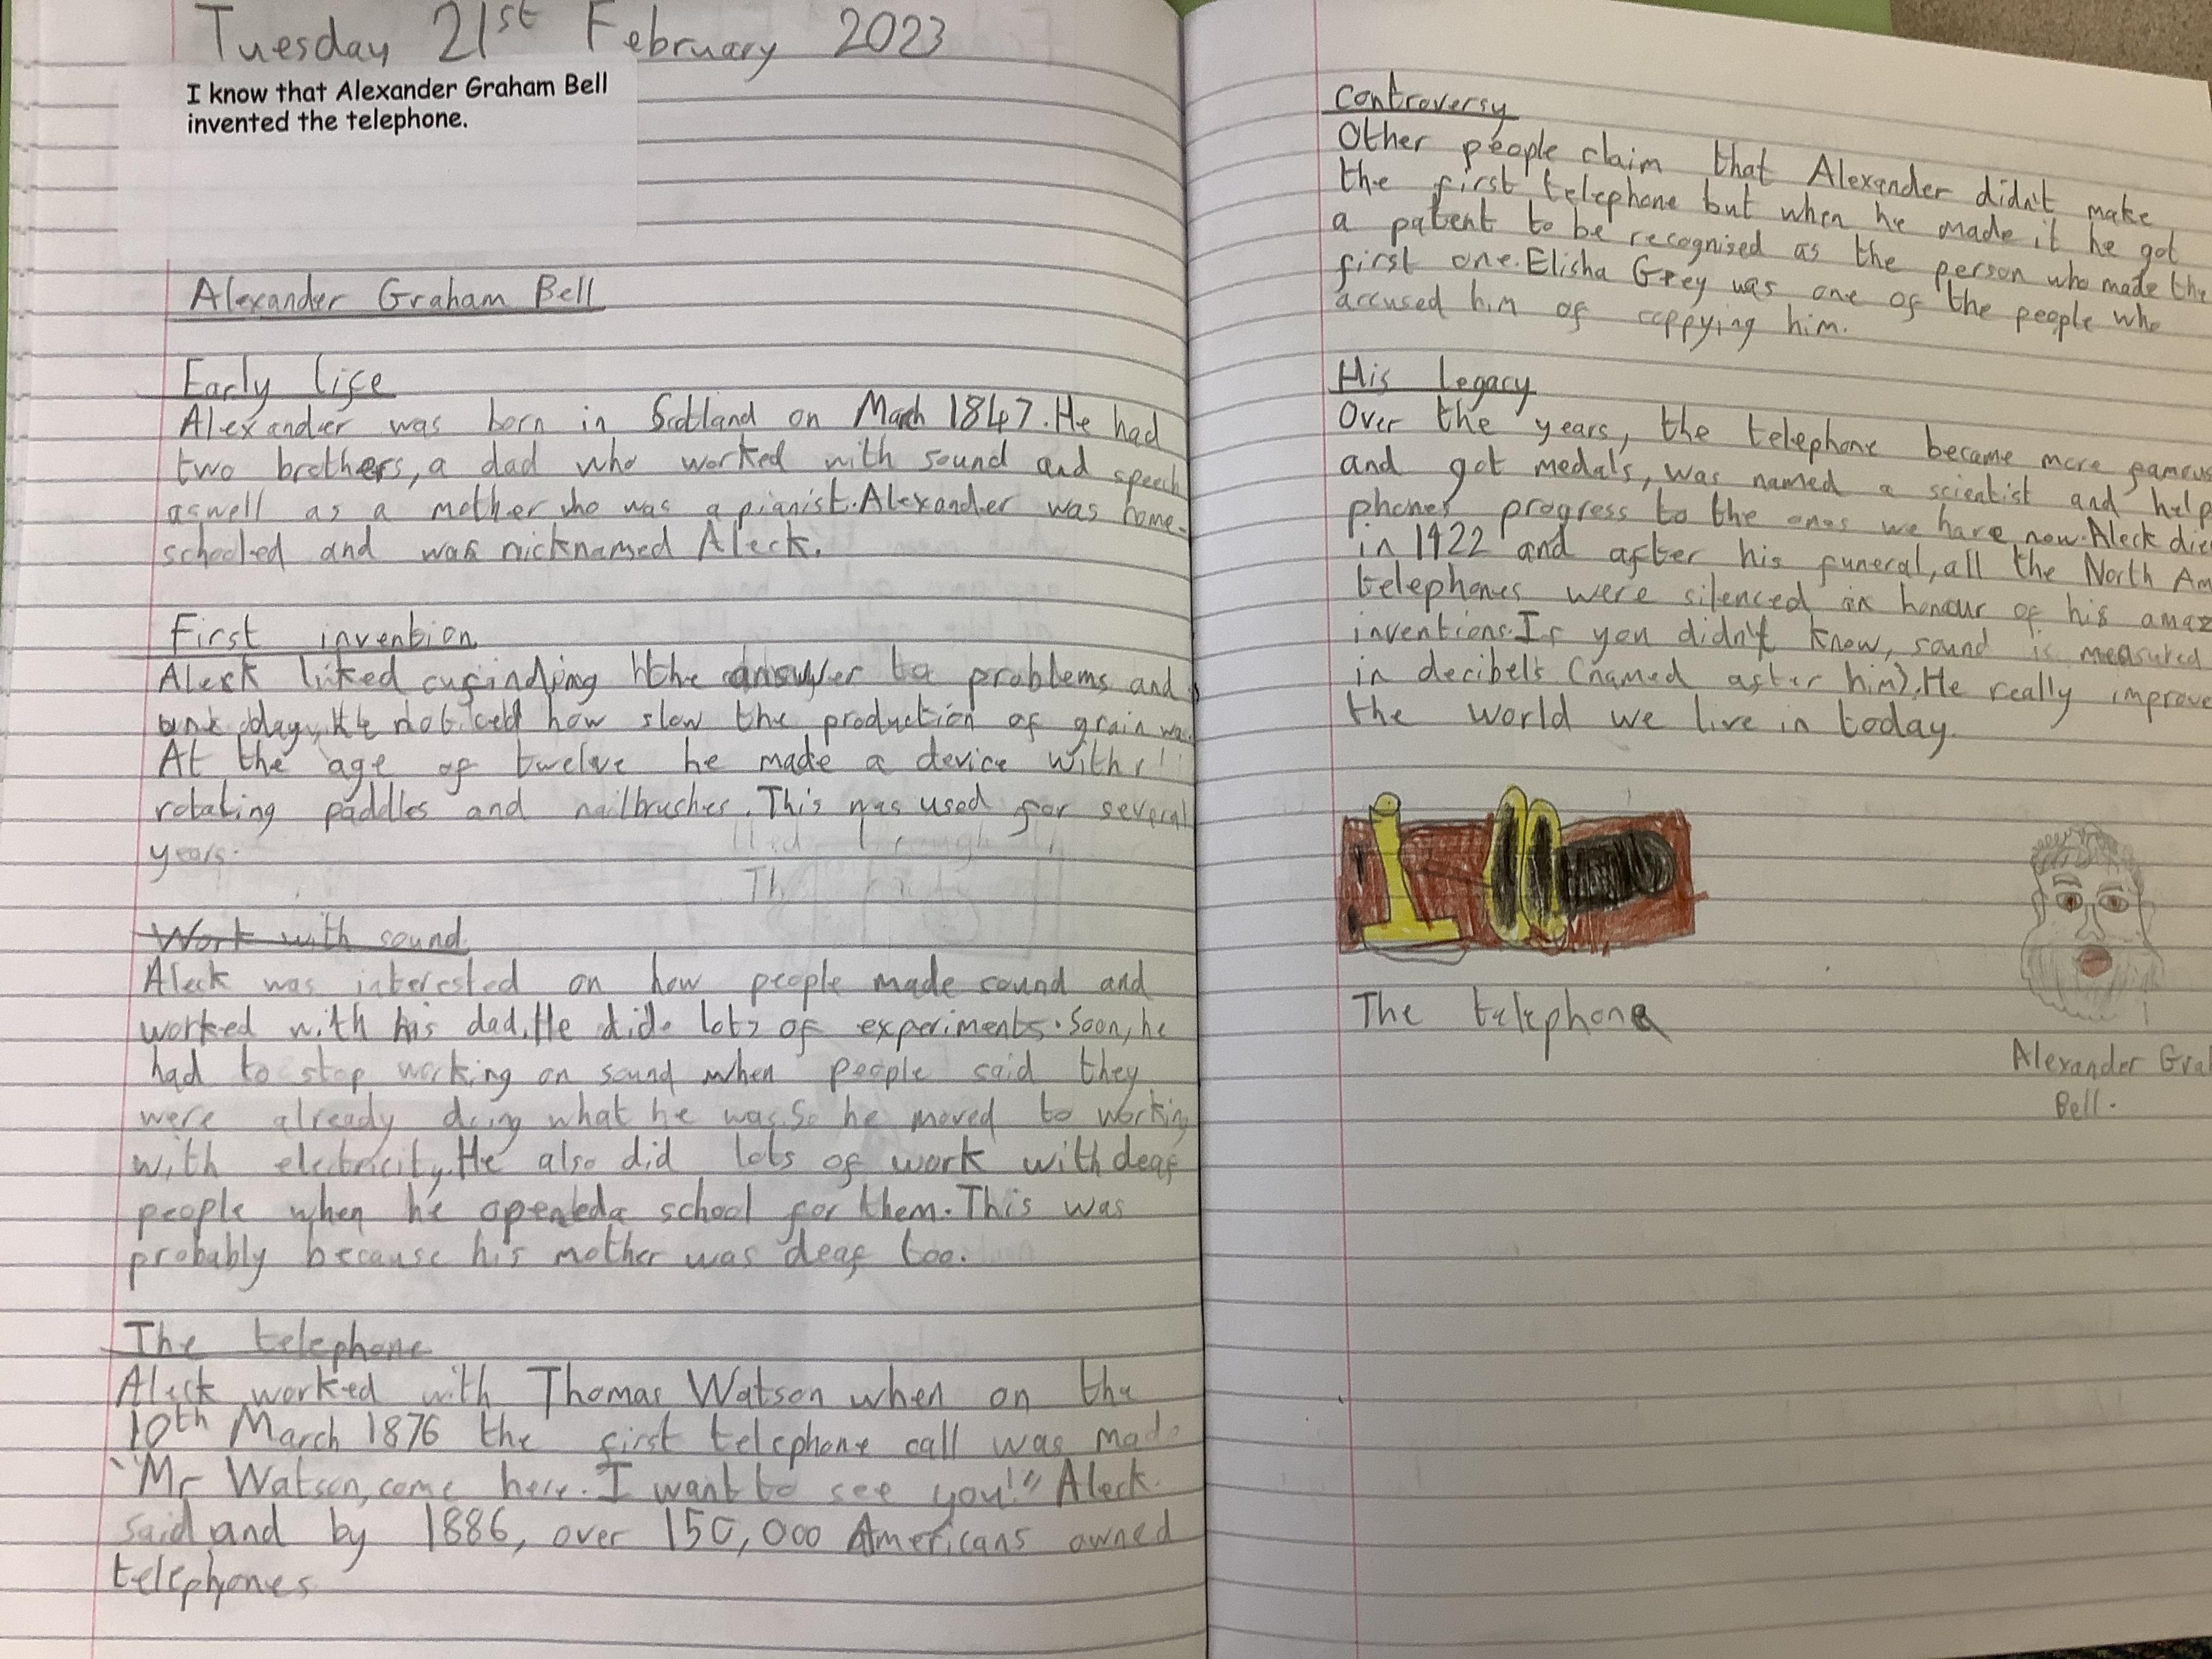 Tuesday 21st February 2023
I know that Alexander Graham Bell
invented the telephone.
Alexander Graham Bell
Early life
Alexander was born in Scotland on March 1847. He had
two brothers, a dad who worked with sound and speech
aswell as a mother who was a pianist. Alexander was home-
schooled and was nicknamed Aleck.
First invention
Aleck liked finding the answer to problems and
one day, He noticed how slow the production of grain was.
At the age of twelve he made a device with
rotating paddles and nailbrushes. This was used for several
years.
Work with sound
Aleck was interested on how people made sound and
worked with his dad. He did lots of experiments. Soon, he
had to stop working on sound when people said they
were already doing what he was. So he moved to working
with electricity. He also did lots of work with deaf
people when he opened a school for them. This was
probably because his mother was deaf too.
The telephone
Aleck worked with Thomas Watson when on the
10th March 1876 the first telephone call was made
"Mr Watson, come here. I want to see you!" Aleck
said and by 1886, over 150,000 Americans owned
telephones
Controversy
Other people claim that Alexander didn't make
the first telephone but when he made it he got
a patent to be recognised as the person who made the
first one. Elisha Grey was one of the people who
accused him of coppying him.
His legacy
Over the years, the telephone became more famous
and got medals, was named a scientist and help
phones progress to the ones we have now. Aleck die
in 1922 and after his funeral, all the North Am
telephones were silenced in honour of his amaz
inventions. If you didn't know, sound is measured
in decibels (named after him). He really improve
the world we live in today.
The telephone
Alexander Gra
Bell.